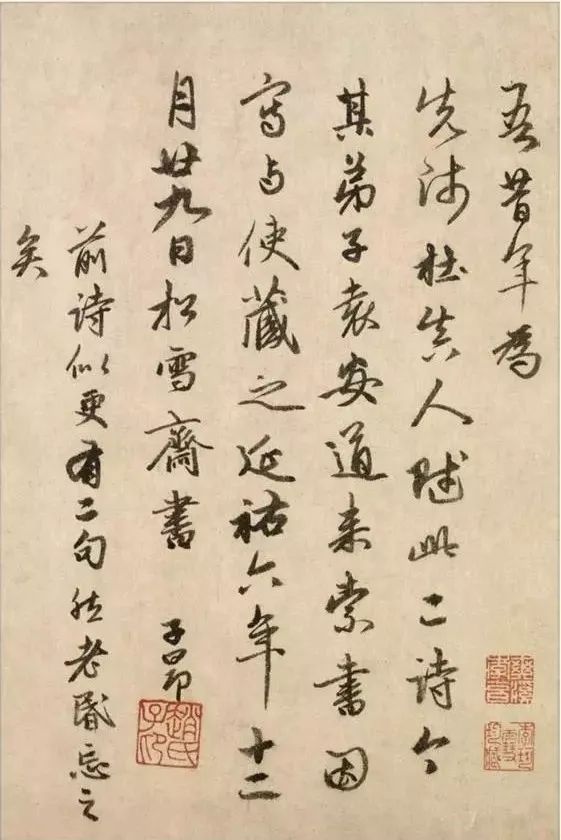 吾昔年為
先師杜真人賦此二詩今
其弟子袁安道来索書因
寫与使藏之延祐六年十二
月廿九日松雪齋書 子昂
趙氏子昂
前詩似更有二句然老昬忘之
矣